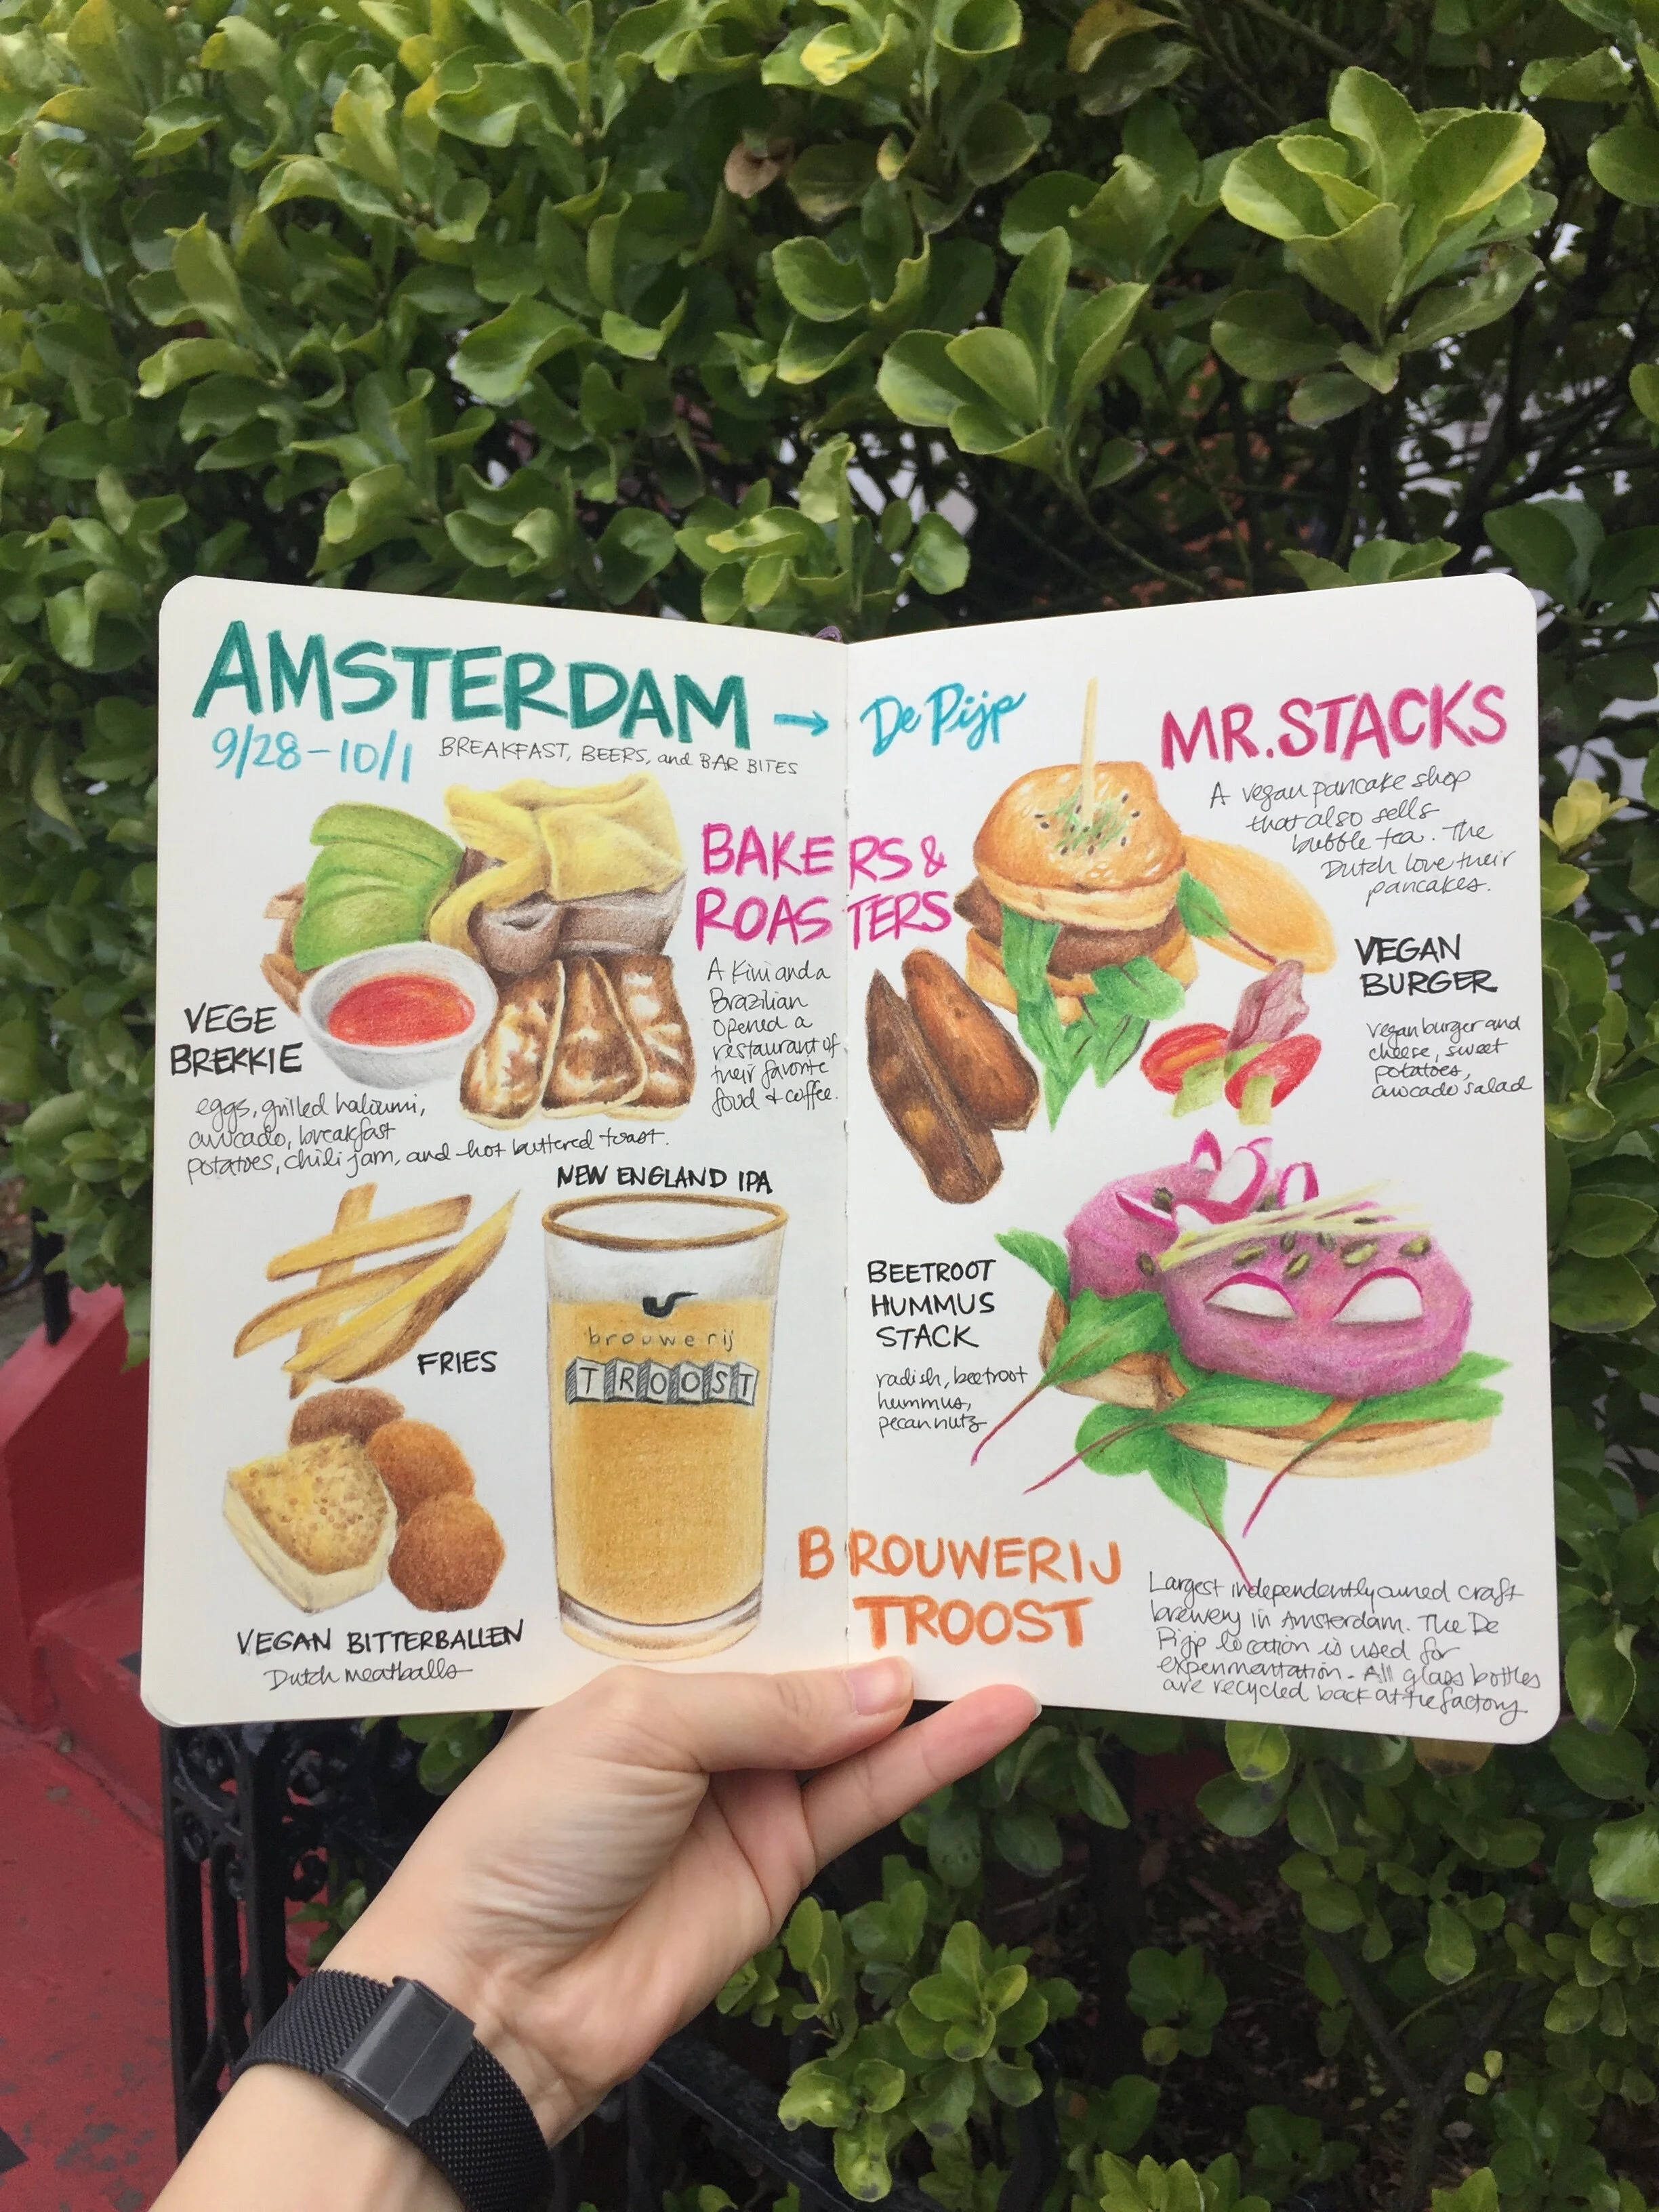 AMSTERDAM → De Pijp
9/28-10/1
BREAKFAST, BEERS, and BAR BITES
BAKERS &
ROASTERS
A Kiwi and a
Brazilian
opened a
restaurant of
their favorite
food + coffee.
VEGE
BREKKIE
eggs, grilled haloumi,
avocado, breakfast
potatoes, chili jam, and hot buttered toast.
NEW ENGLAND IPA
brouwerij
TROOST
FRIES
VEGAN BITTERBALLEN
Dutch meatballs
MR. STACKS
A vegan pancake shop
that also sells
bubble tea. The
Dutch love their
pancakes.
VEGAN
BURGER
vegan burger and
cheese, sweet
potatoes,
avocado salad
BEETROOT
HUMMUS
STACK
radish, beetroot
hummus,
pecan nuts
BROUWERIJ
TROOST
Largest independently owned craft
brewery in Amsterdam. The De
Pijp location is used for
experimentation. All glass bottles
are recycled back at the factory.